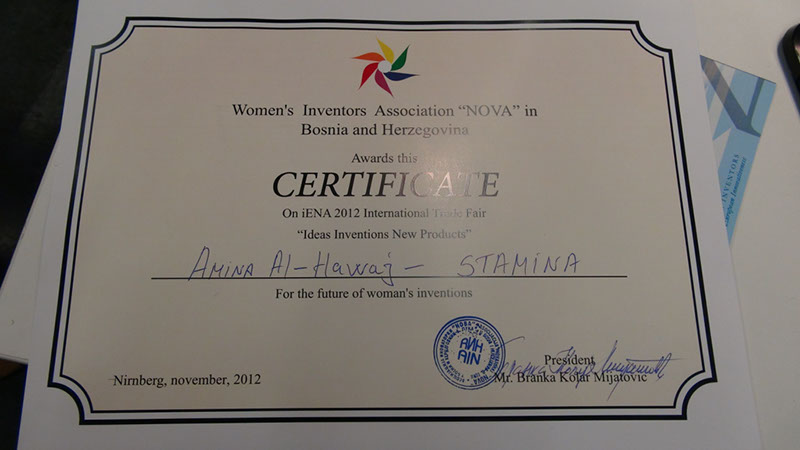 Women's Inventors Association “NOVA” in
Bosnia and Herzegovina
Awards this
CERTIFICATE
On iENA 2012 International Trade Fair
“Ideas Inventions New Products”
Amina Al-Hawaj - STAMINA
For the future of woman's inventions
АИН
AIN
President
Mr. Branka Kolar Mijatovic
Nirnberg, november, 2012
INVENTORS